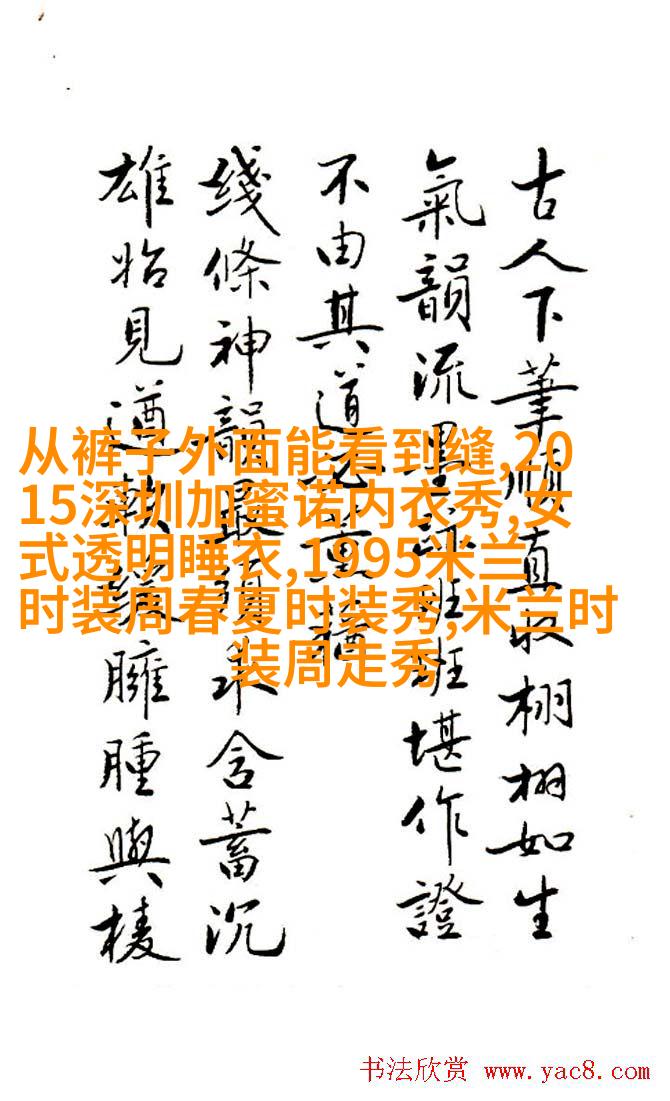 古人下筆順直收栩栩如生
氣韻流墨班班堪作證
不由其道
綫條神韻最求含蓄沉
雄始見遒臃腫與棱
从裤子外面能看到缝,20
15深圳加蜜诺内衣秀,女
式透明睡衣,1995米兰
时装周春夏时装秀,米兰时
装周走秀
书法欣赏 www.yac8.com